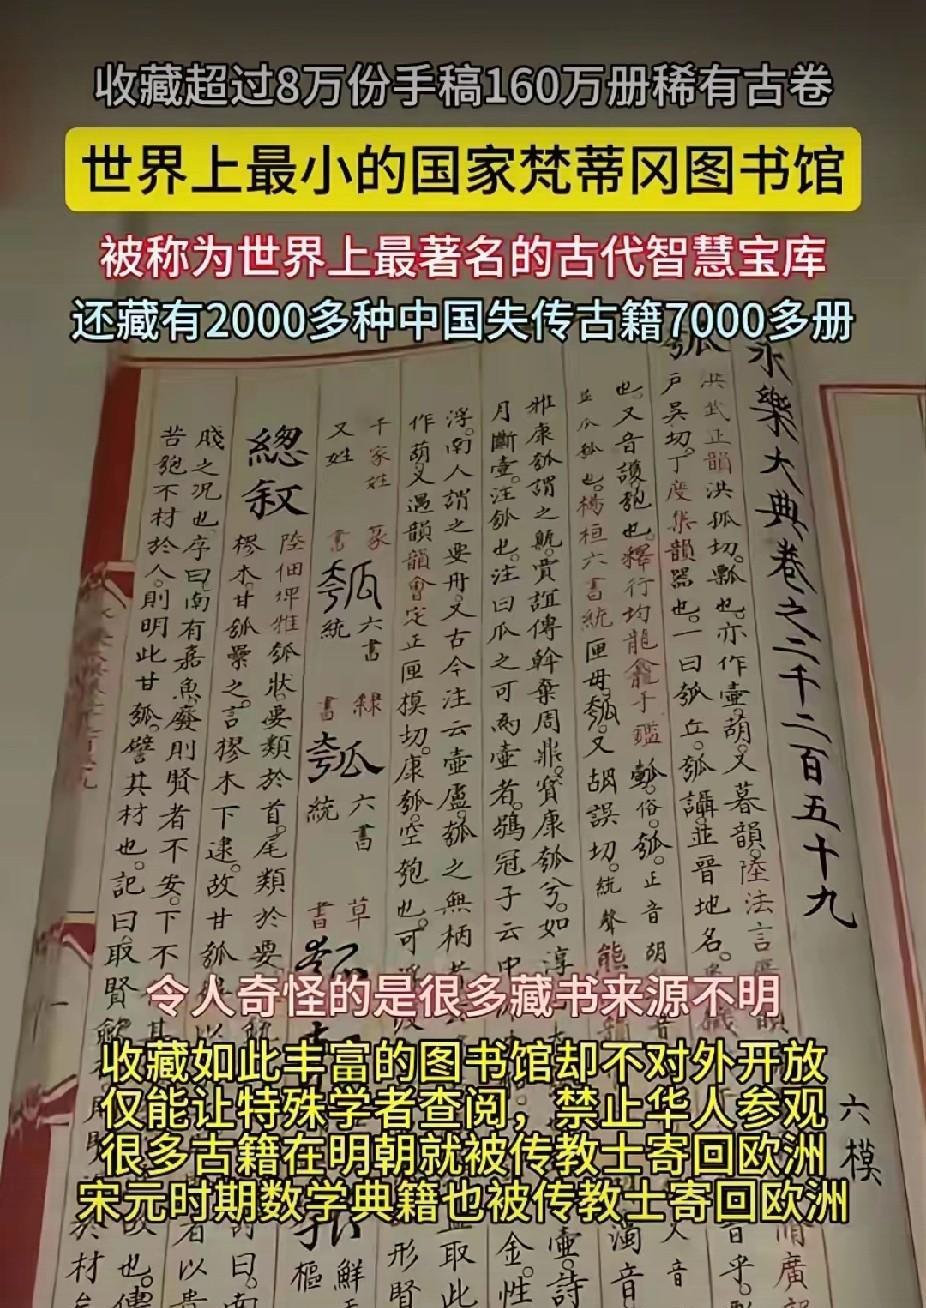 收藏超过8万份手稿160万册稀有古卷
世界上最小的国家梵蒂冈图书馆
被称为世界上最著名的古代智慧宝库
还藏有2000多种中国失传古籍7000多册
永樂大典卷之二千二百五十九
六模
瓠
洪武正韻洪孤切。瓢也。亦作壺。葫。又暮韻。陸法言廣韻
戶吳切。丁度集韻器也。一曰瓠丘。瓠讘。並晉地名。
也。又音護匏也。釋行均龍龕手鑑 俗。瓠。正音胡
並瓜瓠也。楊桓六書統匣母。瓠。又胡誤切。統聲熊
雅康瓠謂之甈。賈誼傳斡棄周鼎。寶康瓠兮。如淳
月斷壺。注瓠也。注曰瓜之可為壺者。鶡冠子云中
浮。南人謂之要舟。又古今注云壺盧。瓠之無柄者
作葫。又過韻韻會定正匣模切。康瓠。空匏也。可
千家姓
又姓
篆書
瓠
六書統
隸書
瓠
六書統
草書
總敘
陸佃埤雅瓠狀。要類於首。尾類於要。
樛木甘瓠纍之。言樛木下逮。故甘瓠
賤之況也。序曰南有嘉魚。廢則賢者不安。下不
苦匏不材於人。則明此甘瓠。譬其材也。記曰。取賢
令人奇怪的是很多藏书来源不明
收藏如此丰富的图书馆却不对外开放
仅能让特殊学者查阅，禁止华人参观
很多古籍在明朝就被传教士寄回欧洲
宋元时期数学典籍也被传教士寄回欧洲